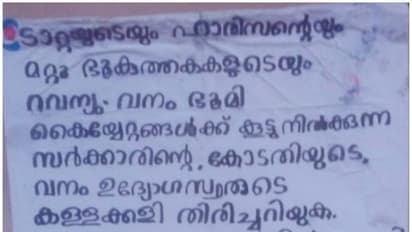 ടാറ്റയുടെയും ഹാരിസന്റെയും
മറ്റു ഭൂകുത്തകകളുടെയും
റവന്യു. വനം ഭൂമി
കൈയ്യേറ്റങ്ങൾക്ക് കൂട്ടുനിൽക്കുന്ന
സർക്കാരിന്റെ, കോടതിയുടെ,
വനം ഉദ്യോഗസ്ഥരുടെ
കള്ളക്കളി തിരിച്ചറിയുക.